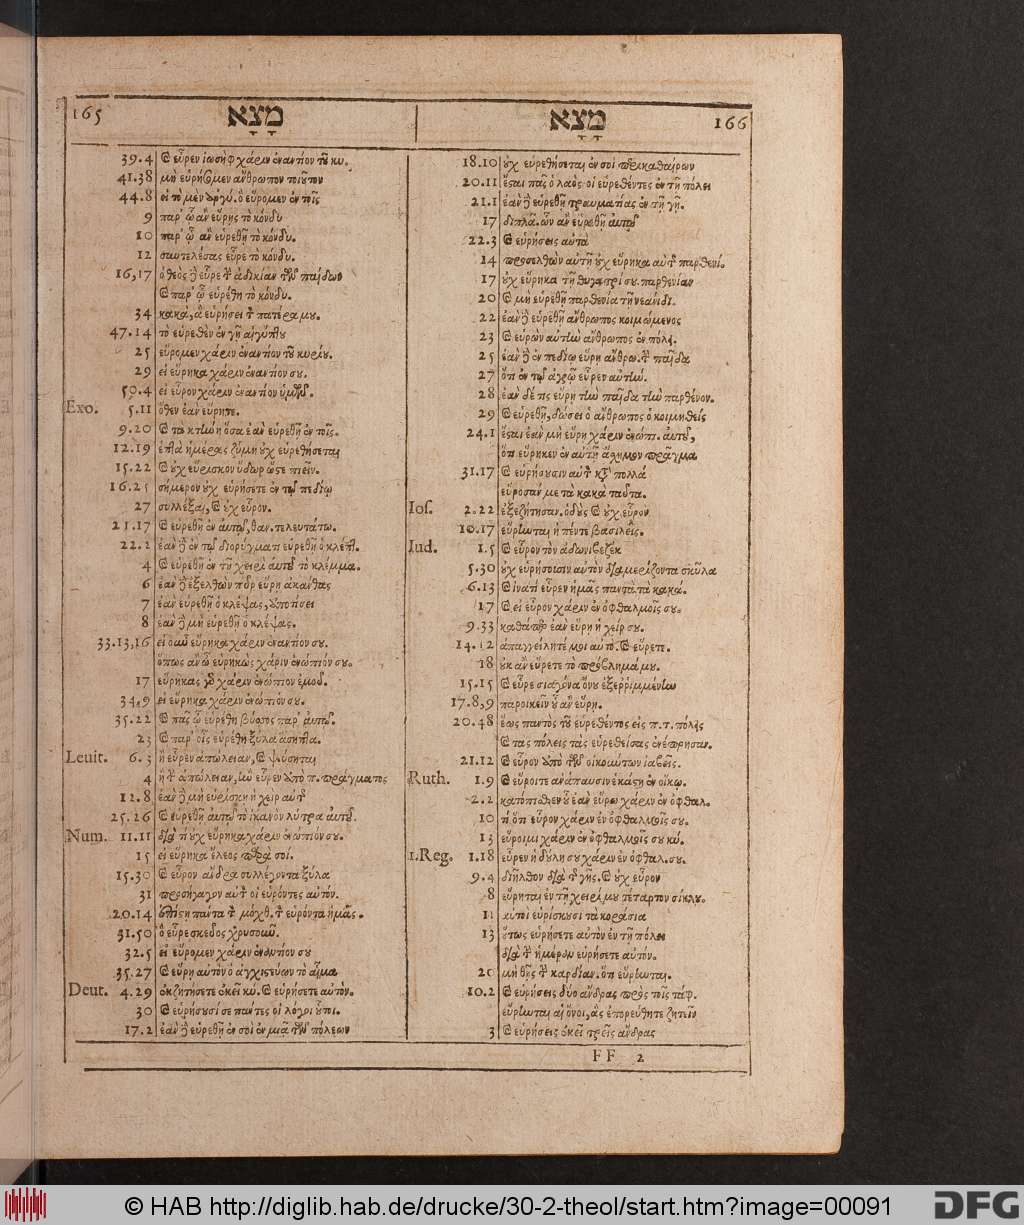 165 מָצָא
39.4 & εὗρεν ἰωσὴφ χάριν ἐναντίον τοῦ κυ.
41.38 μὴ εὑρήσομεν ἄνθρωπον τοιοῦτον
44.8 εἰ τὸ μὲν ἀργύ. ὃ εὕρομεν ἐν τοῖς
9 παρ' ᾧ ἂν εὕρῃς τὸ κόνδυ
10 παρ' ᾧ ἂν εὑρεθῇ τὸ κόνδυ.
12 εὗρε τὸ κόνδυ.
16,17 ὁ θεὸς δὲ εὗρε τὴν ἀδικίαν τῶν παίδων
& παρ' ᾧ εὑρέθη τὸ κόνδυ.
34 κακὰ, ἃ εὑρήσει τὸν πατέρα μου.
47.14 τὸ εὑρεθὲν ἐν γῇ αἰγύπτου
25 εὕρομεν χάριν ἐναντίον τοῦ κυρίου.
29 εἰ εὕρηκα χάριν ἐναντίον σου.
50.4 εἰ εὗρον χάριν ἐναντίον ὑμῶν.
Exo. 5.11 ὅθεν ἐὰν εὕρητε.
9.20 & τὰ κτήνη ὅσα ἐὰν εὑρεθῇ ἐν τοῖς.
12.19 ἑπτὰ ἡμέρας ζύμη οὐχ εὑρεθήσεται
15.22 & οὐχ εὕρισκον ὕδωρ ὥστε πιεῖν.
16.25 σήμερον οὐχ εὑρήσετε ἐν τῷ πεδίῳ
27 συλλέξαι, & οὐχ εὗρον.
21.17 & εὑρεθῇ ἐν αὐτῷ, θαν. τελευτάτω.
22.2 ἐὰν δὲ ἐν τῷ διορύγματι εὑρεθῇ ὁ κλέπτ.
4 & εὑρεθῇ ἐν τῇ χειρὶ αὐτοῦ τὸ κλέμμα.
6 ἐὰν δὲ ἐξελθὼν πῦρ εὕρῃ ἀκάνθας
7 ἐὰν εὑρεθῇ ὁ κλέψας, ἀποτίσει
8 ἐὰν δὲ μὴ εὑρεθῇ ὁ κλέψας.
33.13,16 εἰ οὖν εὕρηκα χάριν ἐναντίον σου.
ὅπως ἂν ὦ εὑρηκὼς χάριν ἐνώπιόν σου.
17 εὕρηκας γὰρ χάριν ἐνώπιον ἐμοῦ.
34.9 εἰ εὕρηκα χάριν ἐνώπιόν σου.
35.22 & πᾶς ᾧ εὑρέθη βύσσος παρ' αὐτῷ.
23 & παρ' οἷς εὑρέθη ξύλα ἄσηπτα.
Leuit. 6.3 ἢ εὗρεν ἀπώλειαν, & ψεύσηται
4 ἢ τὴν ἀπώλειαν, ἣν εὗρεν ἀπὸ π. πράγματος
12.8 ἐὰν δὲ μὴ εὑρίσκῃ ἡ χεὶρ αὐτῆς
25.26 & εὑρεθῇ αὐτῷ τὸ ἱκανὸν λύτρα αὐτοῦ.
Num. 11.11 διὰ τί οὐχ εὕρηκα χάριν ἐνώπιόν σου.
15 εἰ εὕρηκα ἔλεος παρὰ σοί.
15.30 & εὗρον ἄνδρα συλλέγοντα ξύλα
31 προσήγαγον αὐτὸν οἱ εὑρόντες αὐτόν.
20.14 ἐπίστῃ πάντα τὸν μόχθ. τὸν εὑρόντα ἡμᾶς.
31.50 ὃ εὗρε σκεῦος χρυσοῦν.
32.5 εἰ εὕρομεν χάριν ἐνώπιόν σου
35.27 & εὕρῃ αὐτὸν ὁ ἀγχιστεύων τὸ αἷμα
Deut. 4.29 ἐκζητήσετε ἐκεῖ κύ. & εὑρήσετε αὐτὸν.
30 & εὑρήσουσί σε πάντες οἱ λόγοι οὗτοι.
17.2 ἐὰν δὲ εὑρεθῇ ἐν σοὶ ἐν μιᾷ τῶν πόλεων
מָצָא 166
18.10 οὐχ εὑρεθήσεται ἐν σοὶ περικαθαίρων
20.11 ἔσται πᾶς ὁ λαὸς οἱ εὑρεθέντες ἐν τῇ πόλει
21.1 ἐὰν δὲ εὑρεθῇ τραυματίας ἐν τῇ γῇ.
17 διπλᾶ. ὧν ἂν εὑρεθῇ αὐτῷ
22.3 & εὑρήσεις αὐτὰ
14 προσελθὼν αὐτῇ οὐχ εὕρηκα αὐτῆς παρθενί.
17 οὐχ εὕρηκα τῇ θυγατρί σου παρθενίαν
20 & μὴ εὑρεθῇ παρθενία τῇ νεάνιδι.
22 ἐὰν δὲ εὑρεθῇ ἄνθρωπος κοιμώμενος
23 & εὑρὼν αὐτὴν ἄνθρωπος ἐν πόλῃ.
25 ἐὰν δὲ ἐν πεδίῳ εὕρῃ ἄνθρω. τὴν παῖδα
27 ὅτι ἐν τῷ ἀγρῷ εὗρεν αὐτήν.
28 ἐὰν δέ τις εὕρῃ τὴν παῖδα τὴν παρθένον.
29 & εὑρεθῇ, δώσει ὁ ἄνθρωπος ὁ κοιμηθεὶς
24.1 ἔσται ἐὰν μὴ εὕρῃ χάριν ἐνώπι. αὐτοῦ,
ὅτι εὕρηκεν ἐν αὐτῇ ἄσχημον πρᾶγμα
31.17 & εὑρήσουσιν αὐτὸν κακὰ πολλά
εὕροσάν με τὰ κακὰ ταῦτα.
Ios. 2.22 ἐξεζήτησαν. ὁδοὺς & οὐχ εὗρον
10.17 εὕρηνται ἡ πέντε βασιλεῖς.
Iud. 1.5 & εὗρον τὸν ἀδωνιβεζὲκ
5.30 οὐχ εὑρήσουσιν αὐτὸν διαμερίζοντα σκῦλα
6.13 & ἱνατί εὗρεν ἡμᾶς πάντα τὰ κακά.
17 & εἰ εὗρον χάριν ἐν ὀφθαλμοῖς σου.
9.33 καθάπερ ἐὰν εὕρῃ ἡ χείρ σου.
14.12 ἀπαγγείλητέ μοι αὐτὸ. & εὕρετε.
18 οὐκ ἂν εὕρετε τὸ πρόβλημά μου.
15.15 & εὗρε σιαγόνα ὄνου ἐξερριμμένην
17.8,9 παροικεῖν οὗ ἂν εὕρῃ.
20.48 ἕως παντὸς τοῦ εὑρεθέντος εἰς π. τ. πόλῃς
& τὰς πόλεις τὰς εὑρεθείσας ἐνέπρησαν.
21.12 & εὗρον ἀπὸ τῶν οἰκούντων ἰαβεῖς.
Ruth. 1.9 & εὕροιτε ἀνάπαυσιν ἑκάστη ἐν οἴκῳ.
2.2 κατόπισθεν οὗ ἐὰν εὕρω χάριν ἐν ὀφθαλ.
10 τί ὅτι εὗρον χάριν ἐν ὀφθαλμοῖς σου.
13 εὕροιμι χάριν ἐν ὀφθαλμοῖς σου κύ.
1.Reg. 1.18 εὗρεν ἡ δούλη σου χάριν ἐν ὀφθαλ. σου.
9.4 διῆλθον διὰ τῆς γῆς. & οὐχ εὗρον
8 εὕρηται ἐν τῇ χειρί μου τέταρτον σίκλου.
11 αὐτοὶ εὑρίσκουσι τὰ κοράσια
13 οὕτως εὑρήσετε αὐτὸν ἐν τῇ πόλει
διὰ τὴν ἡμέραν εὑρήσετε αὐτόν.
20 μὴ θῇς τὴν καρδίαν. ὅτι εὕρηνται.
10.2 & εὑρήσεις δύο ἄνδρας πρὸς τοῖς τάφ.
εὕρηνται αἱ ὄνοι, ἃς ἐπορεύθητε ζητεῖν
3 & εὑρήσεις ἐκεῖ τρεῖς ἄνδρας
FF 2
© HAB http://diglib.hab.de/drucke/30-2-theol/start.htm?image=00091
DFG